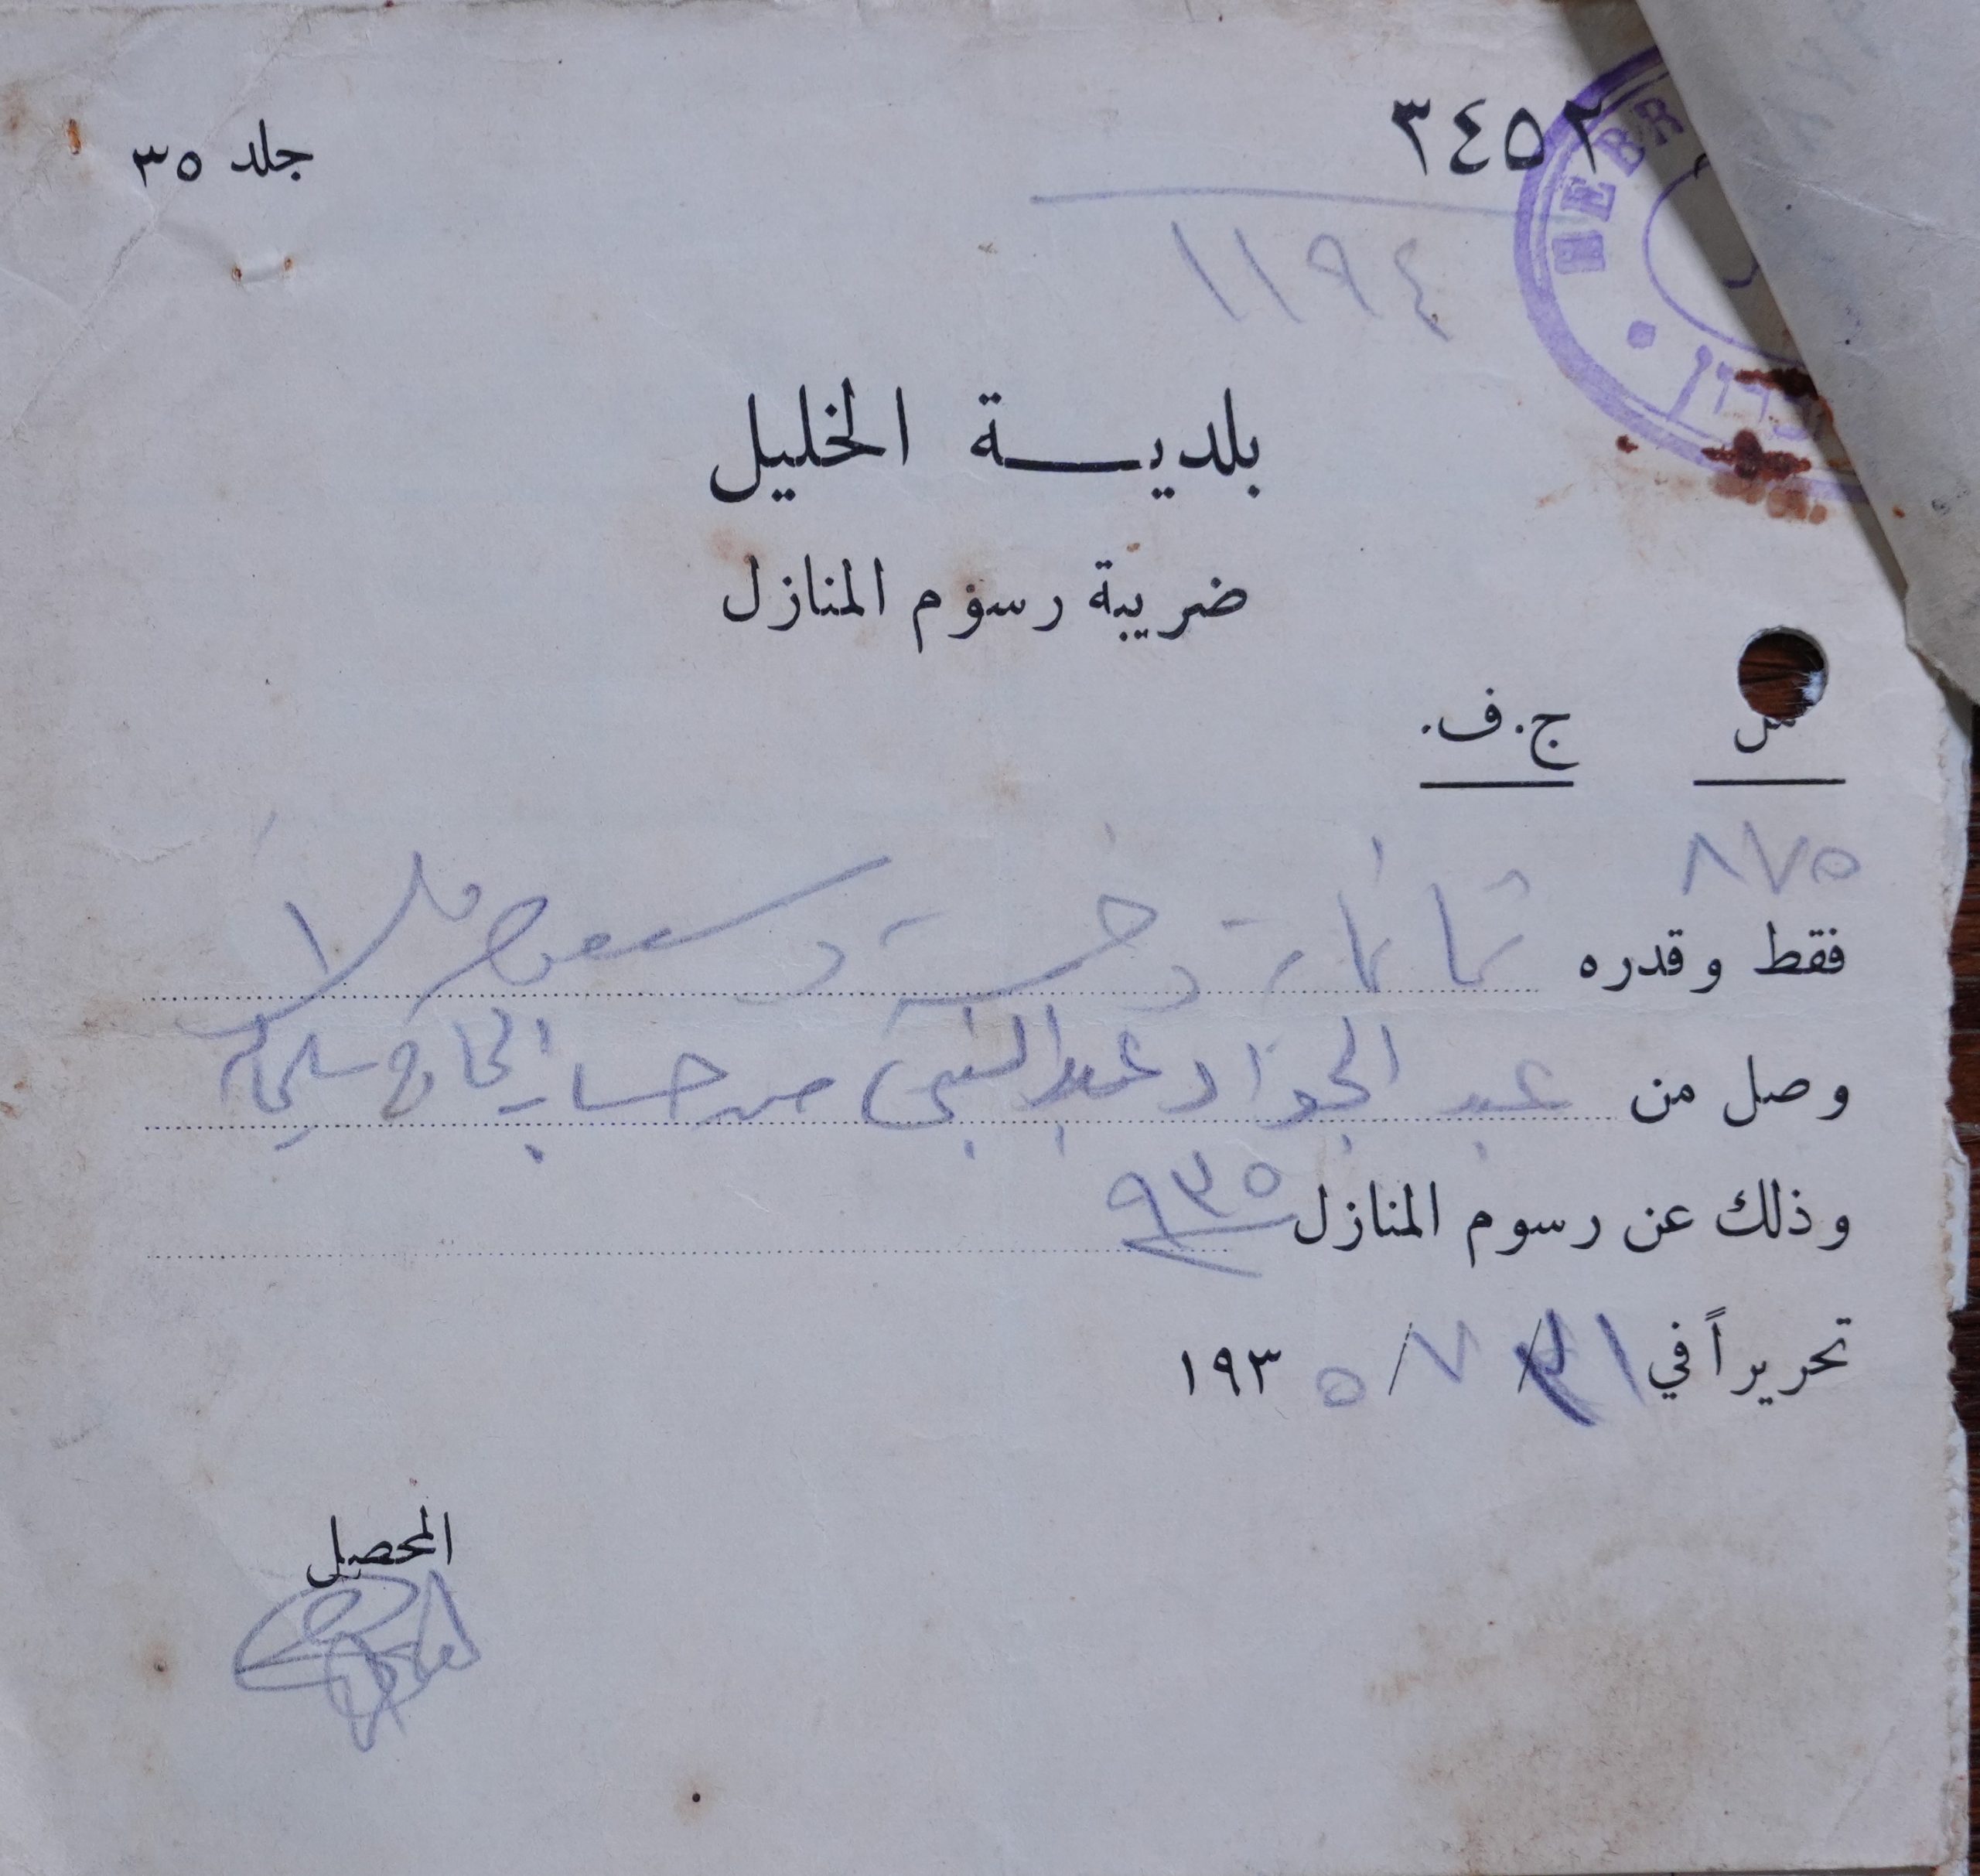 ٣٤٥٢
جلد ٣٥
HEBR
١١٩٤
بلديـة الخليل
ضريبة رسوم المنازل
مل ج . ف .
٨٧٥
فقط وقدره ثمانمائة وخمسة وسبعون ملا
وصل من عبد الجواد عبد النبي من حساب الحاج سليمان
وذلك عن رسوم المنازل ٩٣٥
تحريراً في ٣١ / ٧ / ١٩٣٥
المحصل